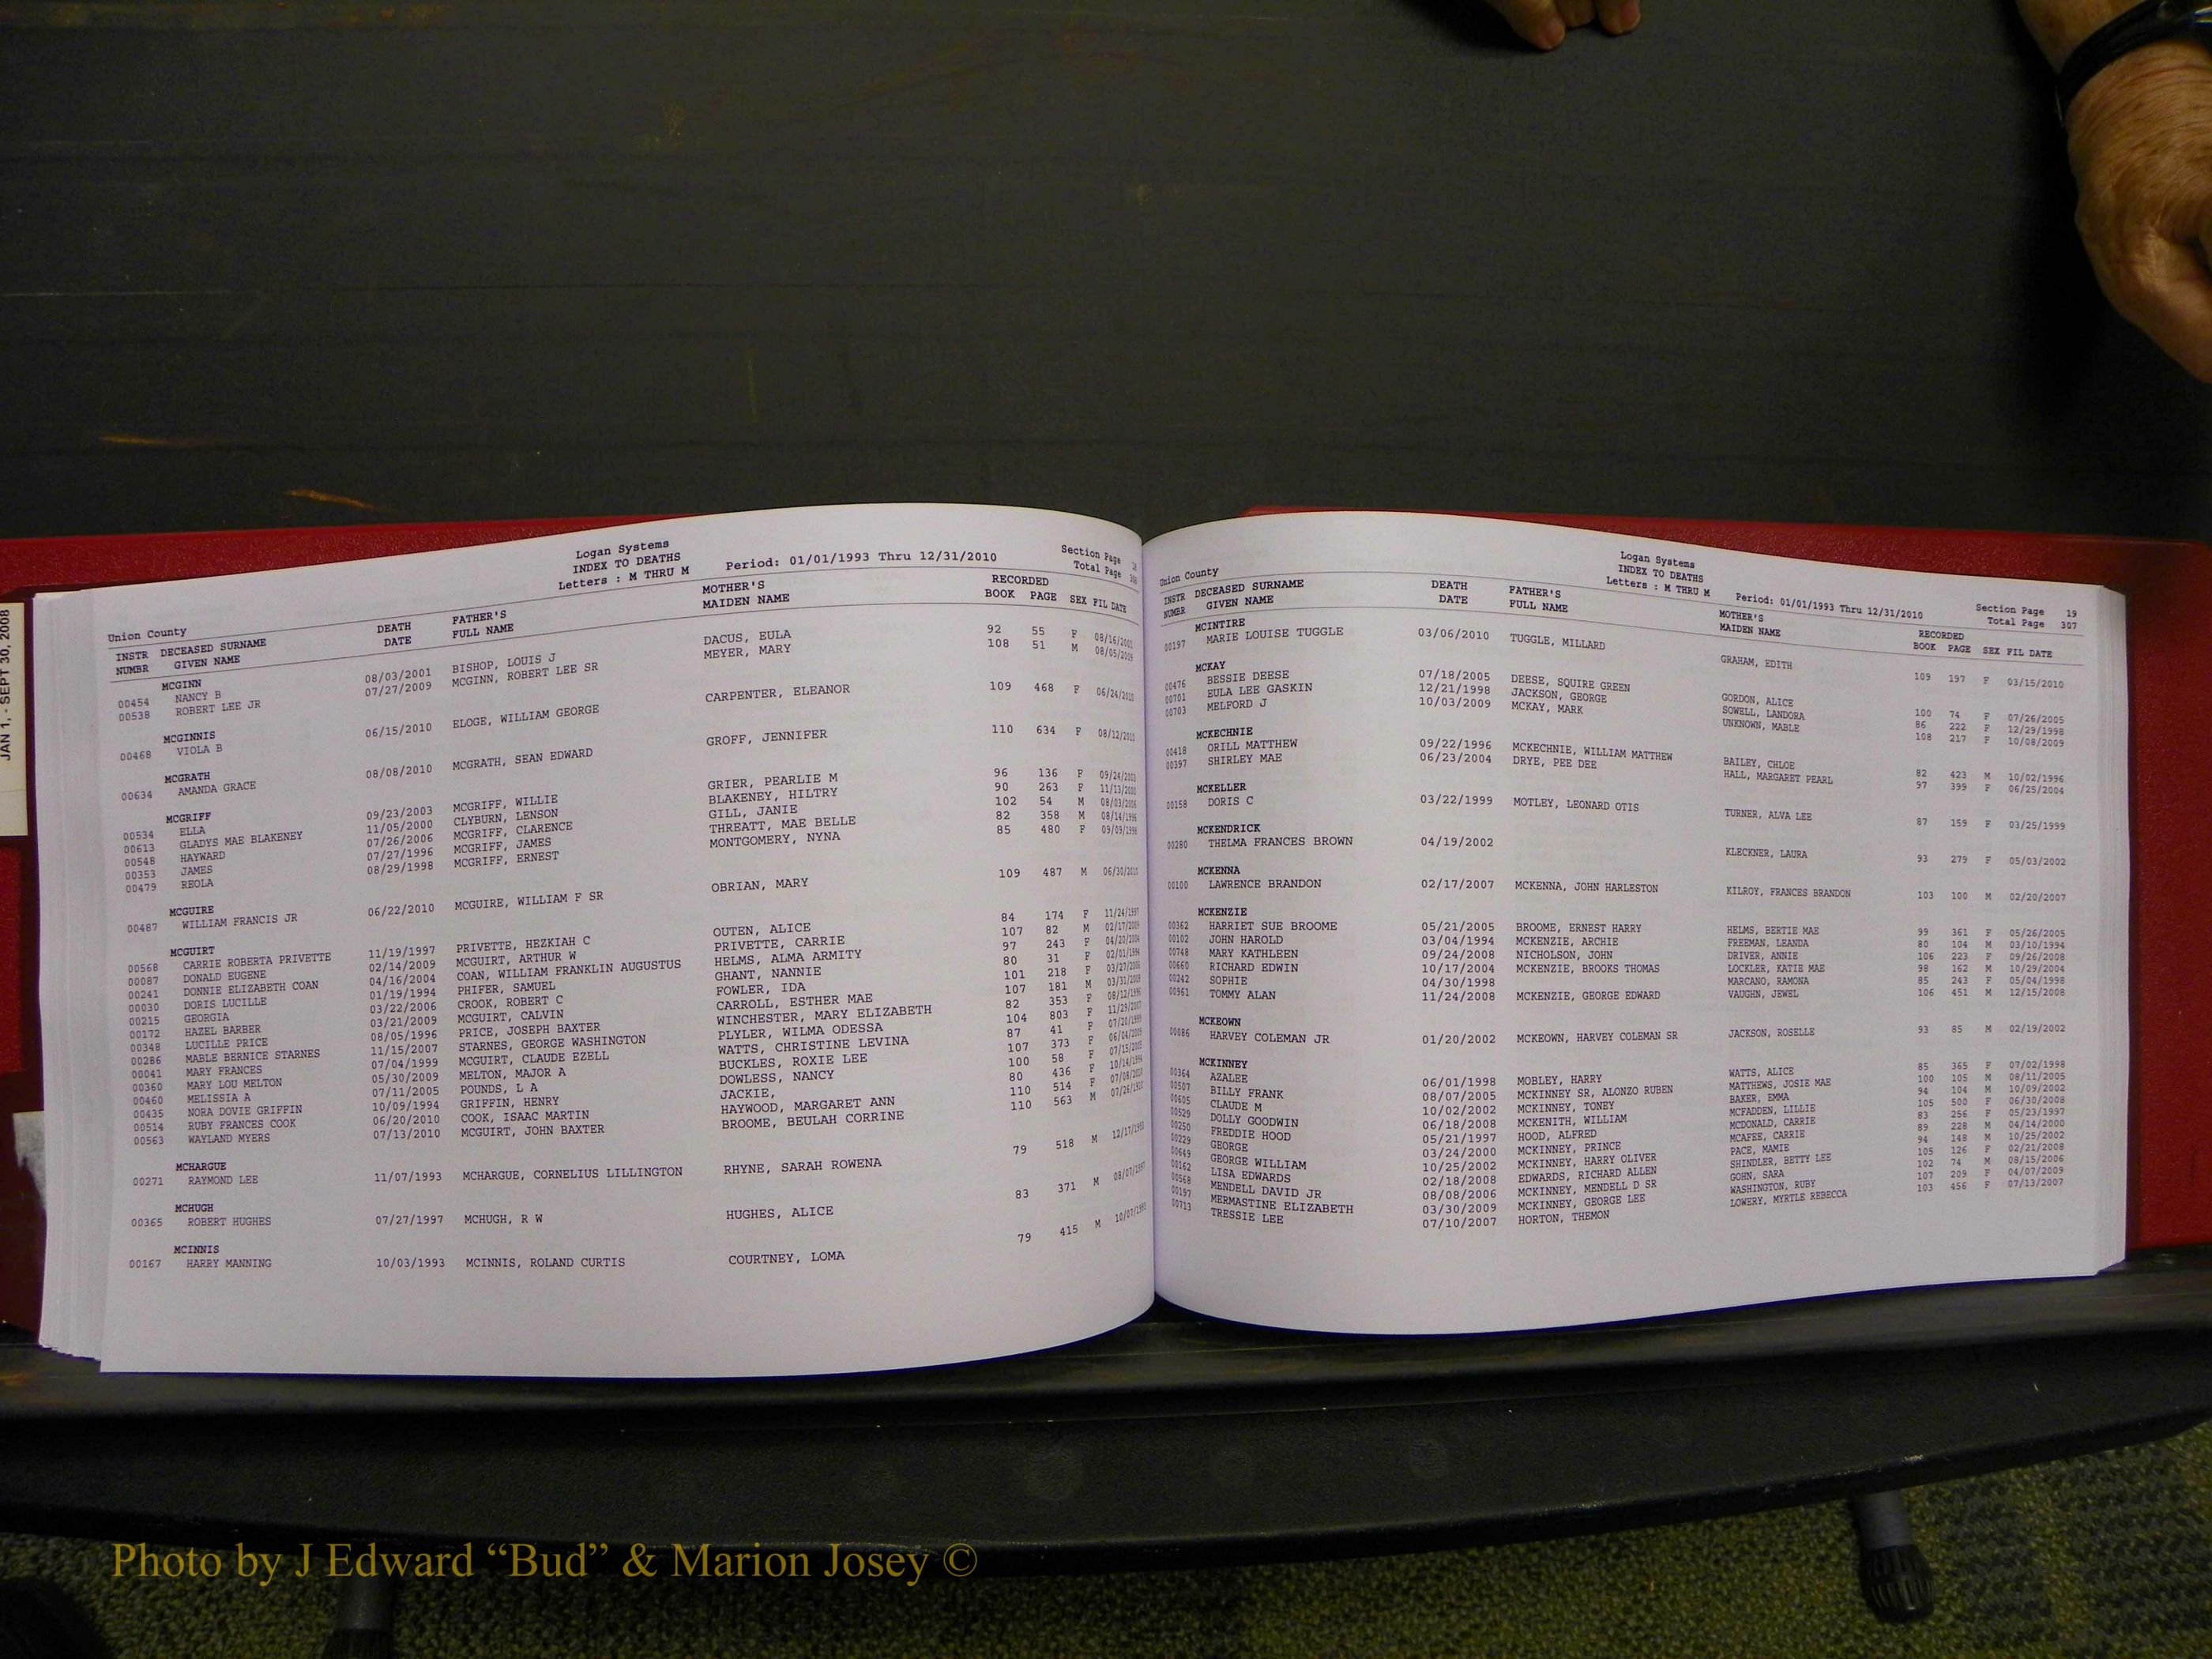 JAN 1, - SEPT 30, 2008
Logan Systems
INDEX TO DEATHS
Letters : M THRU M Period: 01/01/1993 Thru 12/31/2010
Section Page
Total Page
Union County
INSTR DECEASED SURNAME DEATH FATHER'S MOTHER'S RECORDED
NUMBR GIVEN NAME DATE FULL NAME MAIDEN NAME BOOK PAGE SEX FIL DATE
MCGINN
00454 NANCY B 08/03/2001 BISHOP, LOUIS J DACUS, EULA 92 55 F 08/16/2001
00538 ROBERT LEE JR 07/27/2009 MCGINN, ROBERT LEE SR MEYER, MARY 108 51 M 08/05/2009
MCGINNIS
00468 VIOLA B 06/15/2010 ELOGE, WILLIAM GEORGE CARPENTER, ELEANOR 109 468 F 06/24/2010
MCGRATH
00634 AMANDA GRACE 08/08/2010 MCGRATH, SEAN EDWARD GROFF, JENNIFER 110 634 F
MCGRIFF
00534 ELLA 09/23/2003 MCGRIFF, WILLIE GRIER, PEARLIE M 96 136 F 09/24/2003
00613 GLADYS MAE BLAKENEY 11/05/2000 CLYBURN, LENSON BLAKENEY, HILTRY 90 263 F 11/13/2000
00548 HAYWARD 07/26/2006 MCGRIFF, CLARENCE GILL, JANIE 102 54 M 08/03/2006
00353 JAMES 07/27/1996 MCGRIFF, JAMES THREATT, MAE BELLE 82 358 M 08/14/1996
00479 REOLA 08/29/1998 MCGRIFF, ERNEST MONTGOMERY, NYNA 85 480 F 09/09/1998
MCGUIRE
00487 WILLIAM FRANCIS JR 06/22/2010 MCGUIRE, WILLIAM F SR OBRIAN, MARY 109 487 M 06/30/2010
MCGUIRT
00568 CARRIE ROBERTA PRIVETTE 11/19/1997 PRIVETTE, HEZKIAH C OUTEN, ALICE 84 174 F 11/24/1997
00087 DONALD EUGENE 02/14/2009 MCGUIRT, ARTHUR W PRIVETTE, CARRIE 107 82 M 02/17/2009
00241 DONNIE ELIZABETH COAN 04/16/2004 COAN, WILLIAM FRANKLIN AUGUSTUS HELMS, ALMA ARMITY 97 243 F 04/20/2004
00030 DORIS LUCILLE 01/19/1994 PHIFER, SAMUEL GHANT, NANNIE 80 31 F 02/01/1994
00215 GEORGIA 03/22/2006 CROOK, ROBERT C FOWLER, IDA 101 218 F 03/27/2006
00172 HAZEL BARBER 03/21/2009 MCGUIRT, CALVIN CARROLL, ESTHER MAE 107 181 M 03/31/2009
00348 LUCILLE PRICE 08/05/1996 PRICE, JOSEPH BAXTER WINCHESTER, MARY ELIZABETH 82 353 F 08/12/1996
00286 MABLE BERNICE STARNES 11/15/2007 STARNES, GEORGE WASHINGTON PLYLER, WILMA ODESSA 104 803 F 11/29/2007
00041 MARY FRANCES 07/04/1999 MCGUIRT, CLAUDE EZELL WATTS, CHRISTINE LEVINA 87 41 F 07/20/1999
00360 MARY LOU MELTON 05/30/2009 MELTON, MAJOR A BUCKLES, ROXIE LEE 107 373 F 06/04/2009
00460 MELISSIA A 07/11/2005 POUNDS, L A DOWLESS, NANCY 100 58 F 07/15/2005
00435 NORA DOVIE GRIFFIN 10/09/1994 GRIFFIN, HENRY JACKIE, 80 436 F 10/14/1994
00514 RUBY FRANCES COOK 06/20/2010 COOK, ISAAC MARTIN HAYWOOD, MARGARET ANN 110 514 F 07/08/2010
00563 WAYLAND MYERS 07/13/2010 MCGUIRT, JOHN BAXTER BROOME, BEULAH CORRINE 110 563 M
MCHARGUE
00271 RAYMOND LEE 11/07/1993 MCHARGUE, CORNELIUS LILLINGTON RHYNE, SARAH ROWENA 79 518 M 12/17/1993
MCHUGH
00365 ROBERT HUGHES 07/27/1997 MCHUGH, R W HUGHES, ALICE 83 371 M 08/07/1997
MCINNIS
00167 HARRY MANNING 10/03/1993 MCINNIS, ROLAND CURTIS COURTNEY, LOMA 79 415 M 10/07/1993
Logan Systems
INDEX TO DEATHS
Letters : M THRU M Period: 01/01/1993 Thru 12/31/2010
Section Page 19
Total Page 307
Union County
INSTR DECEASED SURNAME DEATH FATHER'S MOTHER'S RECORDED
NUMBR GIVEN NAME DATE FULL NAME MAIDEN NAME BOOK PAGE SEX FIL DATE
MCINTIRE
00197 MARIE LOUISE TUGGLE 03/06/2010 TUGGLE, MILLARD GRAHAM, EDITH 109 197 F 03/15/2010
MCKAY
00476 BESSIE DEESE 07/18/2005 DEESE, SQUIRE GREEN GORDON, ALICE 100 74 F 07/26/2005
00701 EULA LEE GASKIN 12/21/1998 JACKSON, GEORGE SOWELL, LANDORA 86 222 F 12/29/1998
00703 MELFORD J 10/03/2009 MCKAY, MARK UNKNOWN, MABLE 108 217 F 10/08/2009
MCKECHNIE
00418 ORILL MATTHEW 09/22/1996 MCKECHNIE, WILLIAM MATTHEW BAILEY, CHLOE 82 423 M 10/02/1996
00397 SHIRLEY MAE 06/23/2004 DRYE, PEE DEE HALL, MARGARET PEARL 97 399 F 06/25/2004
MCKELLER
00158 DORIS C 03/22/1999 MOTLEY, LEONARD OTIS TURNER, ALVA LEE 87 159 F 03/25/1999
MCKENDRICK
00280 THELMA FRANCES BROWN 04/19/2002 KLECKNER, LAURA 93 279 F 05/03/2002
MCKENNA
00100 LAWRENCE BRANDON 02/17/2007 MCKENNA, JOHN HARLESTON KILROY, FRANCES BRANDON 103 100 M 02/20/2007
MCKENZIE
00362 HARRIET SUE BROOME 05/21/2005 BROOME, ERNEST HARRY HELMS, BERTIE MAE 99 361 F 05/26/2005
00102 JOHN HAROLD 03/04/1994 MCKENZIE, ARCHIE FREEMAN, LEANDA 80 104 M 03/10/1994
00748 MARY KATHLEEN 09/24/2008 NICHOLSON, JOHN DRIVER, ANNIE 106 223 F 09/26/2008
00660 RICHARD EDWIN 10/17/2004 MCKENZIE, BROOKS THOMAS LOCKLER, KATIE MAE 98 162 M 10/29/2004
00242 SOPHIE 04/30/1998 MARCANO, RAMONA 85 243 F 05/04/1998
00961 TOMMY ALAN 11/24/2008 MCKENZIE, GEORGE EDWARD VAUGHN, JEWEL 106 451 M 12/15/2008
MCKEOWN
00086 HARVEY COLEMAN JR 01/20/2002 MCKEOWN, HARVEY COLEMAN SR JACKSON, ROSELLE 93 85 M 02/19/2002
MCKINNEY
00364 AZALEE 06/01/1998 MOBLEY, HARRY WATTS, ALICE 85 365 F 07/02/1998
00507 BILLY FRANK 08/07/2005 MCKINNEY SR, ALONZO RUBEN MATTHEWS, JOSIE MAE 100 105 M 08/11/2005
00605 CLAUDE M 10/02/2002 MCKINNEY, TONEY BAKER, EMMA 94 104 M 10/09/2002
00529 DOLLY GOODWIN 06/18/2008 MCKENITH, WILLIAM MCFADDEN, LILLIE 105 500 F 06/30/2008
00250 FREDDIE HOOD 05/21/1997 HOOD, ALFRED MCDONALD, CARRIE 83 256 F 05/23/1997
00229 GEORGE 03/24/2000 MCKINNEY, PRINCE MCAFEE, CARRIE 89 228 M 04/14/2000
00649 GEORGE WILLIAM 10/25/2002 MCKINNEY, HARRY OLIVER PACE, MAMIE 94 148 M 10/25/2002
00162 LISA EDWARDS 02/18/2008 EDWARDS, RICHARD ALLEN SHINDLER, BETTY LEE 105 126 F 02/21/2008
00568 MENDELL DAVID JR 08/08/2006 MCKINNEY, MENDELL D SR GOHN, SARA 102 74 M 08/15/2006
00197 MERMASTINE ELIZABETH 03/30/2009 MCKINNEY, GEORGE LEE WASHINGTON, RUBY 107 209 F 04/07/2009
00713 TRESSIE LEE 07/10/2007 HORTON, THEMON LOWERY, MYRTLE REBECCA 103 456 F 07/13/2007
Photo by J Edward “Bud” & Marion Josey ©